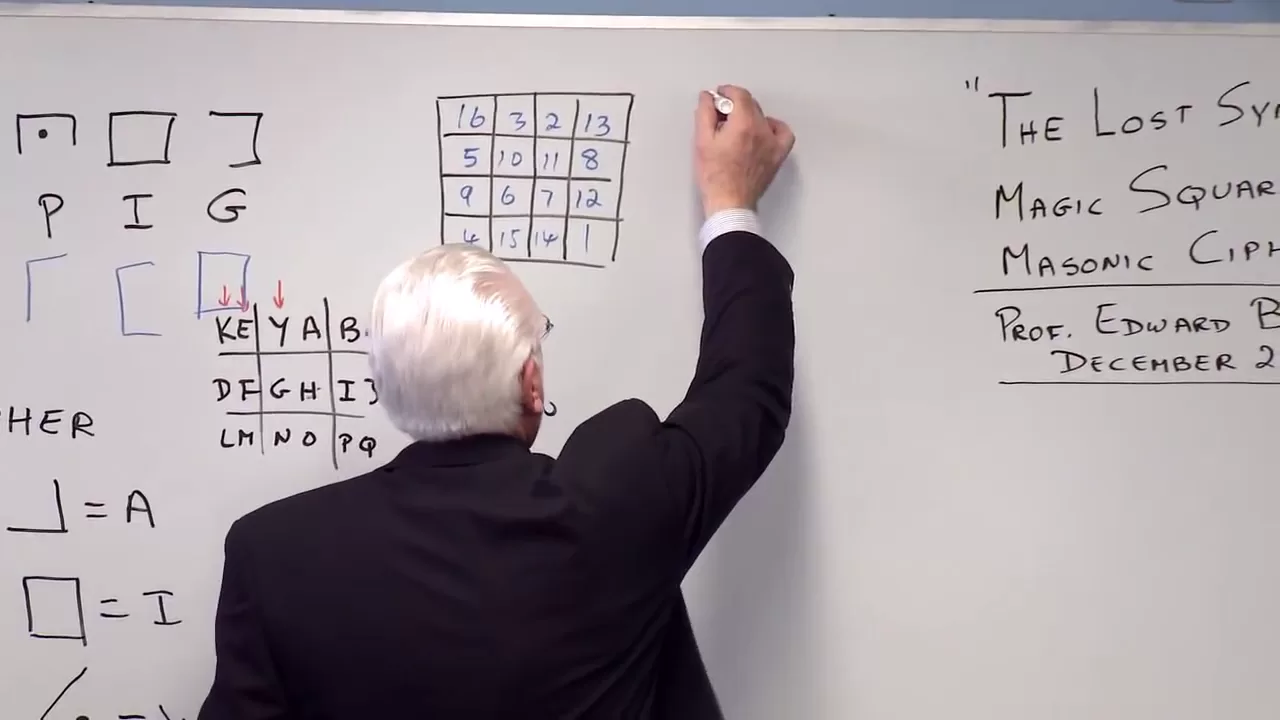 P I G
16 3 2 13
5 10 11 8
9 6 7 12
4 15 14 1
KE Y A B.
DF G H I J
LM N O P Q
HER
= A
= I
"THE LOST SY
MAGIC SQUAR
MASONIC CIPH
PROF. EDWARD B
DECEMBER 2